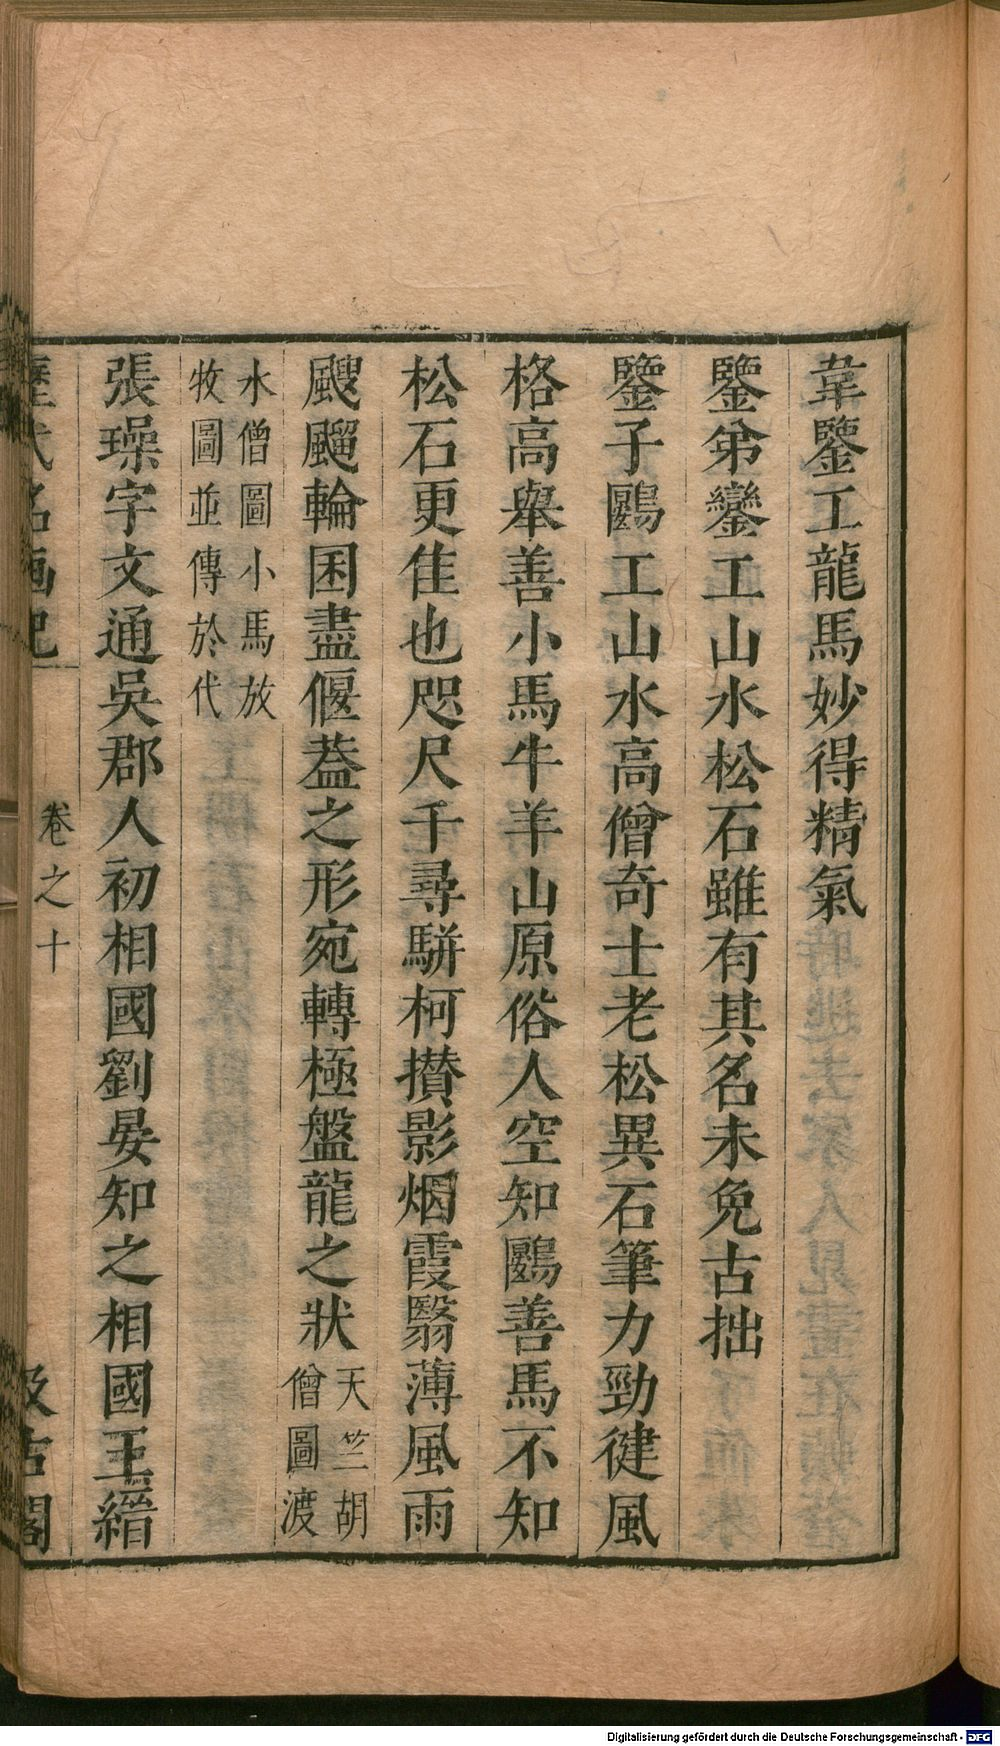 韋鑒工龍馬妙得精氣
鑒弟鑾工山水松石雖有其名未免古拙
鑒子鷗工山水高僧奇士老松異石筆力勁健風
格高舉善小馬牛羊山原俗人空知鷗善馬不知
松石更佳也咫尺千尋駢柯攅影烟霞翳薄風雨
颼飀輪囷盡偃葢之形宛轉極盤龍之狀天竺胡
僧圖渡
水僧圖小馬放
牧圖並傳於代
張璪字文通吳郡人初相國劉晏知之相國王縉
歷代名画記
卷之十
汲古閣
Digitalisierung gefördert durch die Deutsche Forschungsgemeinschaft - DFG